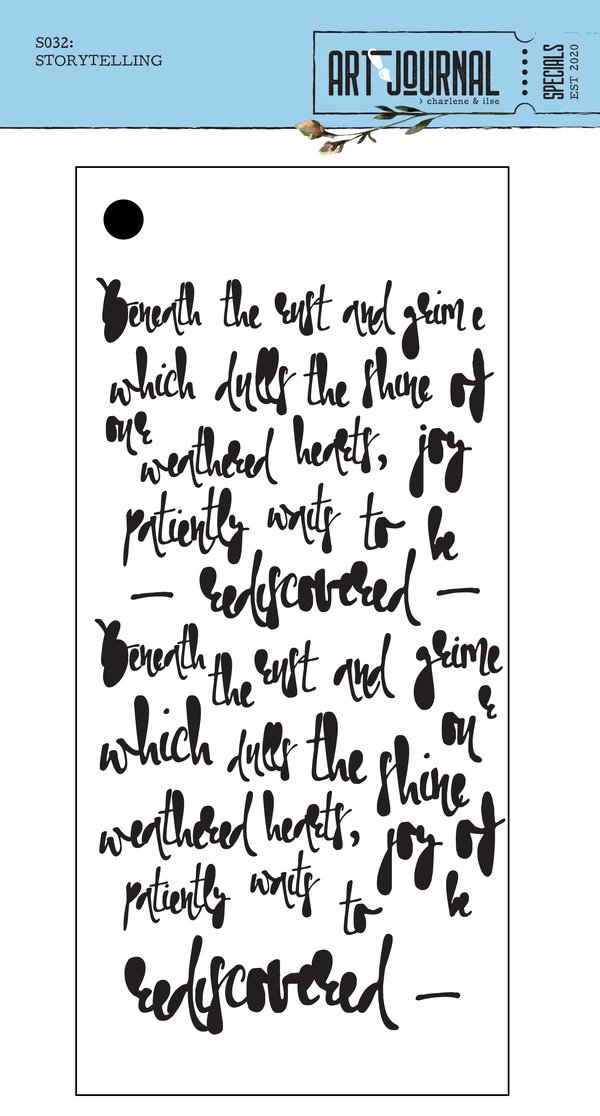 S032:
STORYTELLING
ART JOURNAL
› charlene & ilse
SPECIALS
EST 2020
Beneath the rust and grime
which dulls the shine of
our
weathered hearts, joy
patiently waits to be
— rediscovered —
Beneath the rust and grime
our
which dulls the shine
weathered hearts, joy of
patiently waits to be
rediscovered —